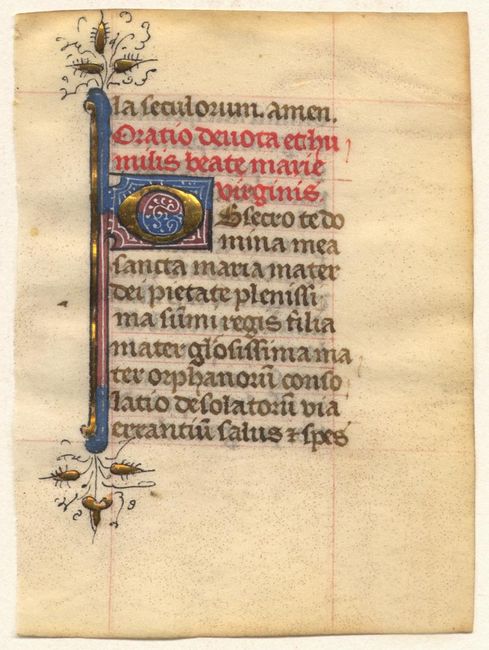 la seculorum. amen.
Oratio deuota et hu
milis beate marie
virginis
OBsecro te do
mina mea
sancta maria mater
dei pietate plenissi
ma sūmi regis filia
mater glosissima ma
ter orphanorū conso
latio desolatorū via
errantiū salus ⁊ spes